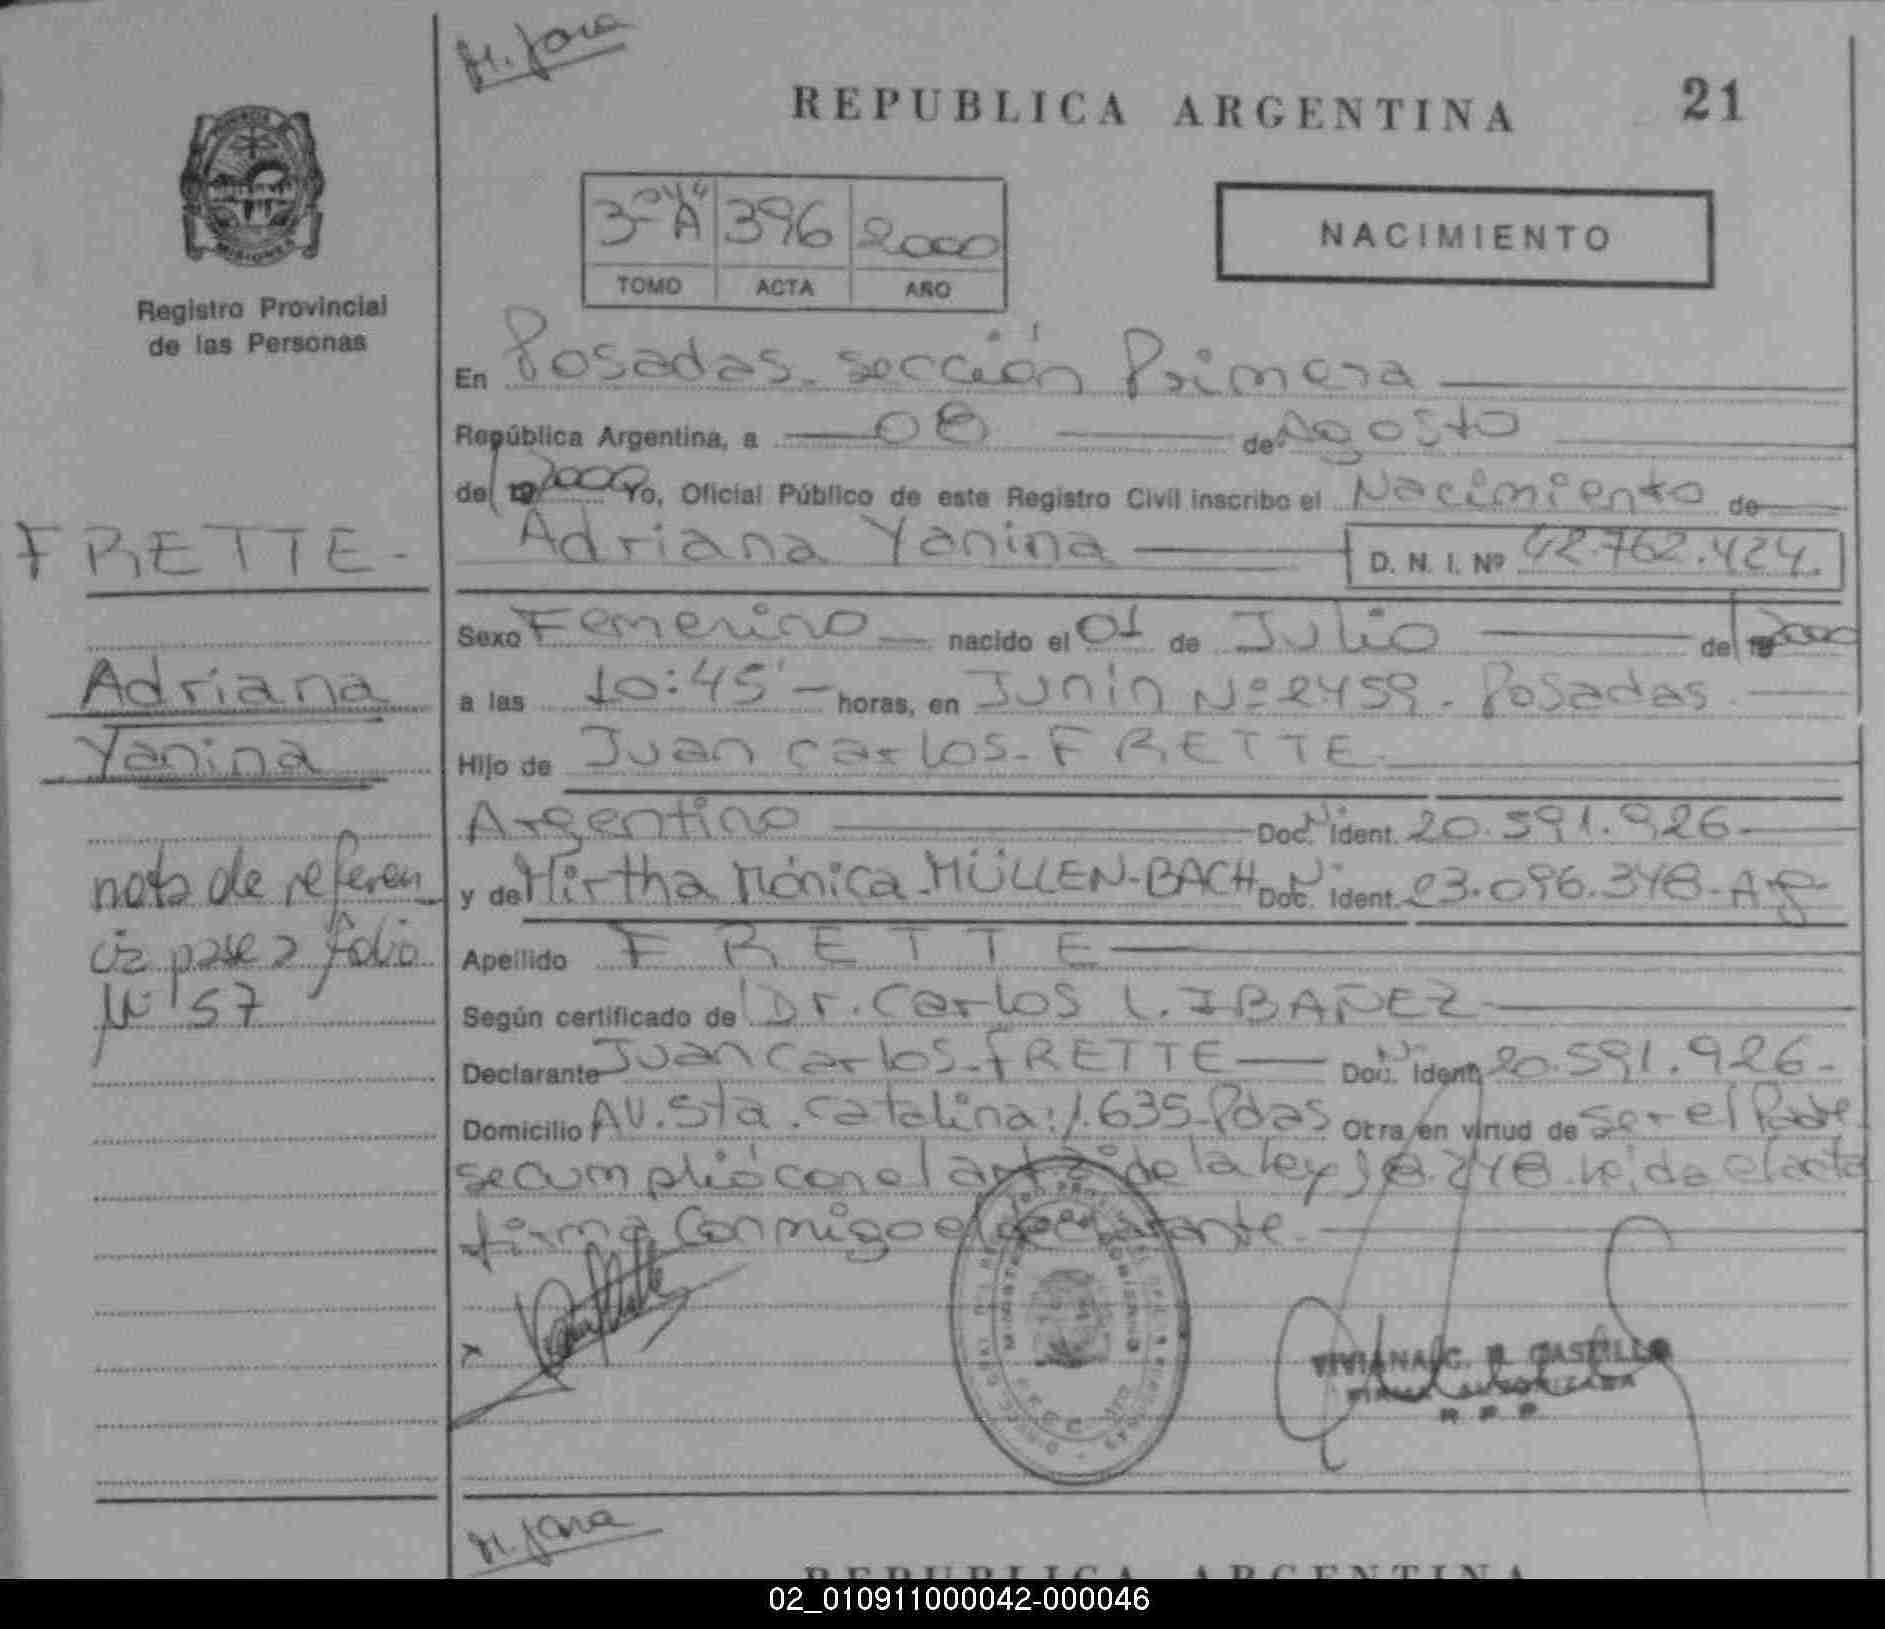 M. Jara
REPUBLICA ARGENTINA 21
3º "A" 396 2000
TOMO ACTA AÑO
NACIMIENTO
Registro Provincial
de las Personas
En Posadas. sección Primera
República Argentina, a 08 de Agosto
de 2000 Yo, Oficial Público de este Registro Civil inscribo el Nacimiento de
FRETTE-
Adriana Yanina D. N. I. Nº 42.762.424.
Sexo Femenino nacido el 01 de Julio de 2000
Adriana
a las 10:45 - horas, en Junín Nº 2459. Posadas
Yanina
Hijo de Juan Carlos-FRETTE
Argentino Doc. Ident. 20.591.926-
nota de referen
y de Mirtha Mónica-MÜLLEN-BACH Doc. Ident. 23.096.348-Arg
cia pase a folio
Apellido FRETTE
Nº 57
Según certificado de Dr. Carlos L. IBAÑEZ
Declarante Juan Carlos-FRETTE Doc. Ident. 20.591.926-
Domicilio AV. Sta. Catalina: 1.635-Pdas Otra en virtud de ser el Padre
se cumplió con el art 2º de la ley 18.248. leída el acta
firma conmigo el declarante.
VIVIANA C. R. CASTILLO
FIRMA AUTORIZADA
R P P
M. Jara
REPUBLICA ARGENTINA
02_010911000042-000046